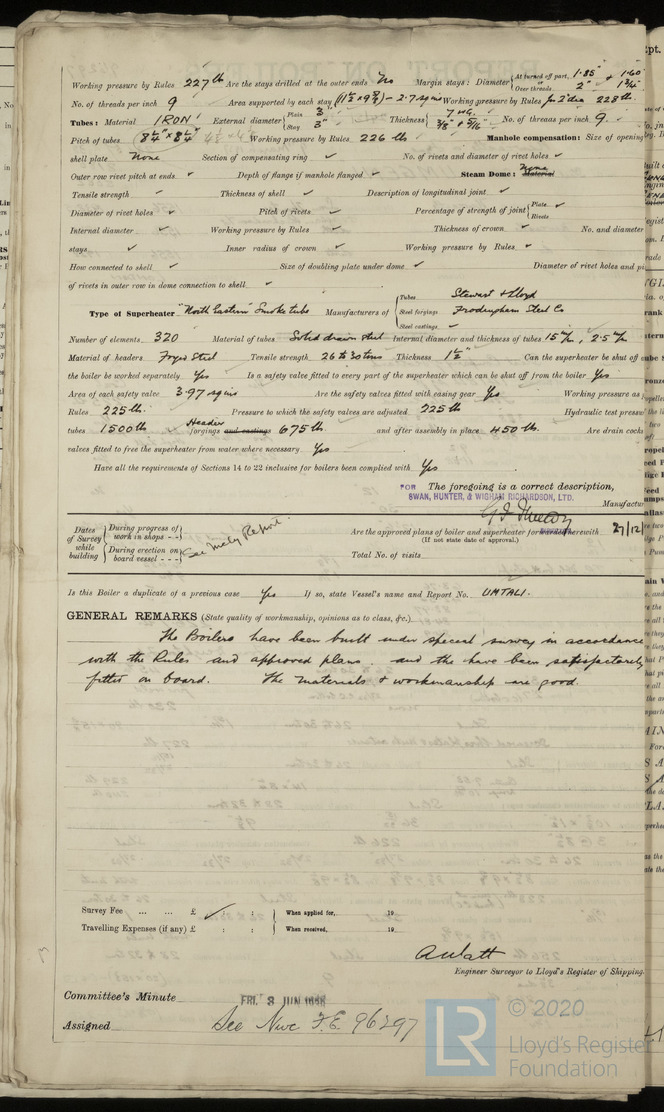 Working pressure by Rules 227 lb Are the stays drilled at the outer ends No Margin stays: Diameter { At turned off part, 1·85" + 1·60" or Over threads 2" 1 3/4"
No. of threads per inch 9 Area supported by each stay (11½ × 9¾) – 2·7 sq ins Working pressure by Rules for 2" dia 228 lb.
Tubes: Material IRON External diameter { Plain 3" Stay 3" Thickness { 7 WG. 3/8" & 5/16" No. of threads per inch 9.
Pitch of tubes (8¼" × 8¼") Working pressure by Rules 226 lb Manhole compensation: Size of opening
shell plate None Section of compensating ring ✓ No. of rivets and diameter of rivet holes ✓
Outer row rivet pitch at ends ✓ Depth of flange if manhole flanged ✓ Steam Dome: None Material
Tensile strength ✓ Thickness of shell ✓ Description of longitudinal joint ✓
Diameter of rivet holes ✓ Pitch of rivets ✓ Percentage of strength of joint { Plate ✓ Rivets
Internal diameter ✓ Working pressure by Rules ✓ Thickness of crown ✓ No. and diameter
stays ✓ Inner radius of crown ✓ Working pressure by Rules ✓
How connected to shell ✓ Size of doubling plate under dome ✓ Diameter of rivet holes and pi
of rivets in outer row in dome connection to shell ✓
Type of Superheater "North Eastern" Smoke tube Manufacturers of { Tubes Stewart & Lloyd Steel forgings Frodingham Steel Co Steel castings ✓
Number of elements 320 Material of tubes Solid drawn steel Internal diameter and thickness of tubes 15 m/m, 2·5 m/m
Material of headers Forged Steel Tensile strength 26 to 30 tons Thickness 1½" Can the superheater be shut off
the boiler be worked separately Yes Is a safety valve fitted to every part of the superheater which can be shut off from the boiler Yes
Area of each safety valve 3·97 sq ins Are the safety valves fitted with easing gear Yes Working pressure as
Rules 225 lb. Pressure to which the safety valves are adjusted 225 lb Hydraulic test pressu
tubes 1500 lb ✓ Header forgings and castings 675 lb and after assembly in place 450 lb. Are drain cocks
valves fitted to free the superheater from water where necessary Yes
Have all the requirements of Sections 14 to 22 inclusive for boilers been complied with Yes
FOR The foregoing is a correct description,
SWAN, HUNTER, & WIGHAM RICHARDSON, LTD.
Manufactu
Dates of Survey while building { During progress of work in shops - - } { During erection on board vessel - - - } See Mchy Report. Are the approved plans of boiler and superheater forwarded herewith 27/12/
(If not state date of approval.)
Total No. of visits
Is this Boiler a duplicate of a previous case Yes If so, state Vessel's name and Report No. UMTALI.
GENERAL REMARKS (State quality of workmanship, opinions as to class, &c.)
The Boilers have been built under special survey in accordance
with the Rules and approved plans and the have been satisfactorily
fitted on board. The materials & workmanship are good.
Survey Fee ... ... £ ✓ : : When applied for, 19
Travelling Expenses (if any) £ : : When received, 19
A Watt
Engineer Surveyor to Lloyd's Register of Shipping.
Committee's Minute FRI. 3 JUN
Assigned See Nwc F.E. 96297
LR © 2020
Lloyd's Register
Foundation